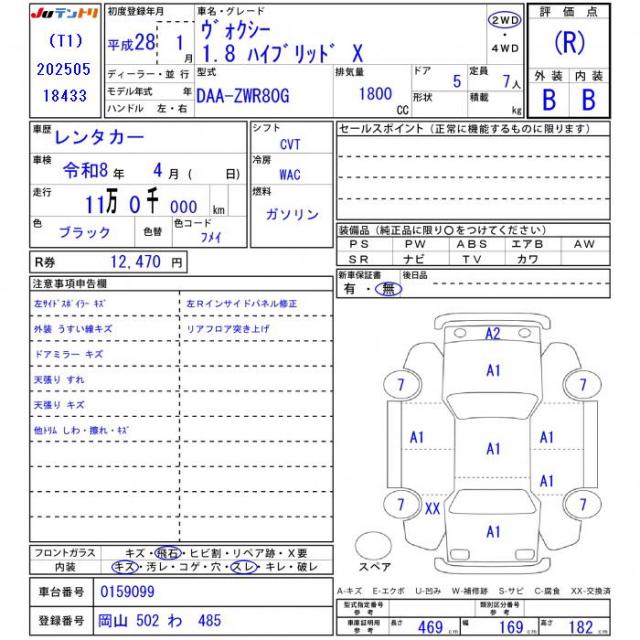 JUテントリ
(T1)
202505
18433
初度登録年月
平成28 1月
車名・グレード
ヴォクシー
1.8 ハイブリッド X
2WD
・
4WD
評価点
(R)
外装 内装
B B
ディーラー・並行
モデル年式 年
ハンドル 左・右
型式
DAA-ZWR80G
排気量
1800 CC
ドア
5
形状
定員
7人
積載
kg
車歴
レンタカー
車検
令和8年 4月 ( 日)
走行
11万 0千 000 km
色
ブラック
色替
色コード
フメイ
シフト
CVT
冷房
WAC
燃料
ガソリン
セールスポイント (正常に機能するものに限ります)
装備品 (純正品に限り〇をつけてください)
PS PW ABS エアB AW
SR ナビ TV カワ
新車保証書
有・無
後日品
R券 12,470 円
注意事項申告欄
左サイドスポイラー キズ
左Rインサイドパネル修正
外装 うすい線キズ
リアフロア突き上げ
ドアミラー キズ
天張り すれ
天張り キズ
他トリム しわ・擦れ・キズ
フロントガラス キズ・飛石・ヒビ割・リペア跡・X要
内装 キズ・汚レ・コゲ・穴・スレ・キレ・破レ
車台番号 0159099
登録番号 岡山 502 わ 485
A2
A1
7 7
A1 A1 A1
A1
7 XX 7
A1
スペア
A-キズ E-エクボ U-凹み W-補修跡 S-サビ C-腐食 XX-交換済
型式指定番号
類別区分番号
車庫証明用参考 長さ 469 cm 幅 169 cm 高さ 182 cm